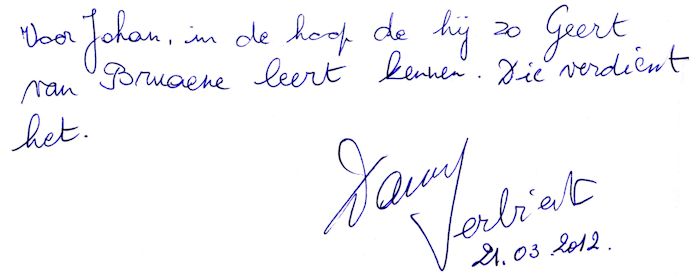 Voor Johan, in de hoop de hij zo Geert
van Bruaene leert kennen. Die verdient
het.
Danny
Verbiest
21.03.2012.